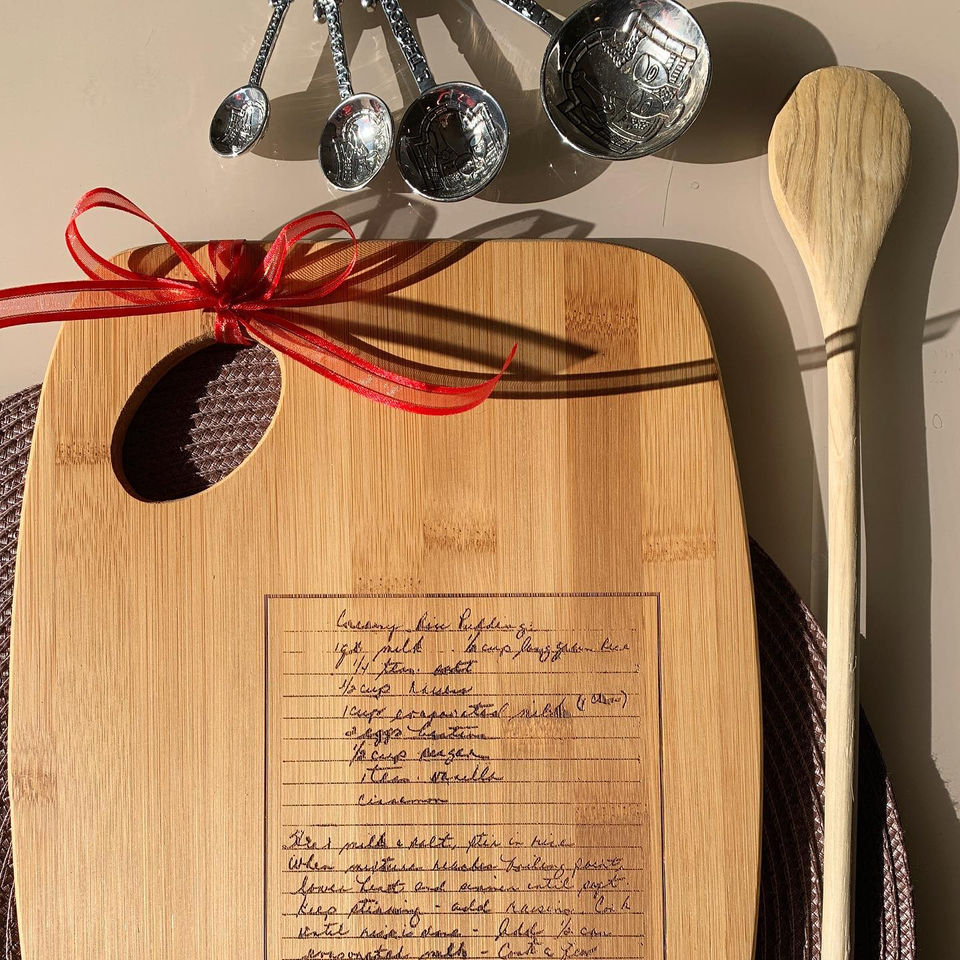 Creamy Rice Pudding:
1 qt milk . 1/2 cup long grain rice
1/4 teas. salt
1/2 cup raisins
1 cup evaporated milk (1 can)
eggs beaten
1/2 cup sugar
1 teas. vanilla
cinnamon
Heat milk & salt, stir in rice
When mixture reaches boiling point,
lower heat and simmer until soft
keep stirring - add raisins. Cook
until rice is done - Add 1/2 can
evaporated milk - Cook a few